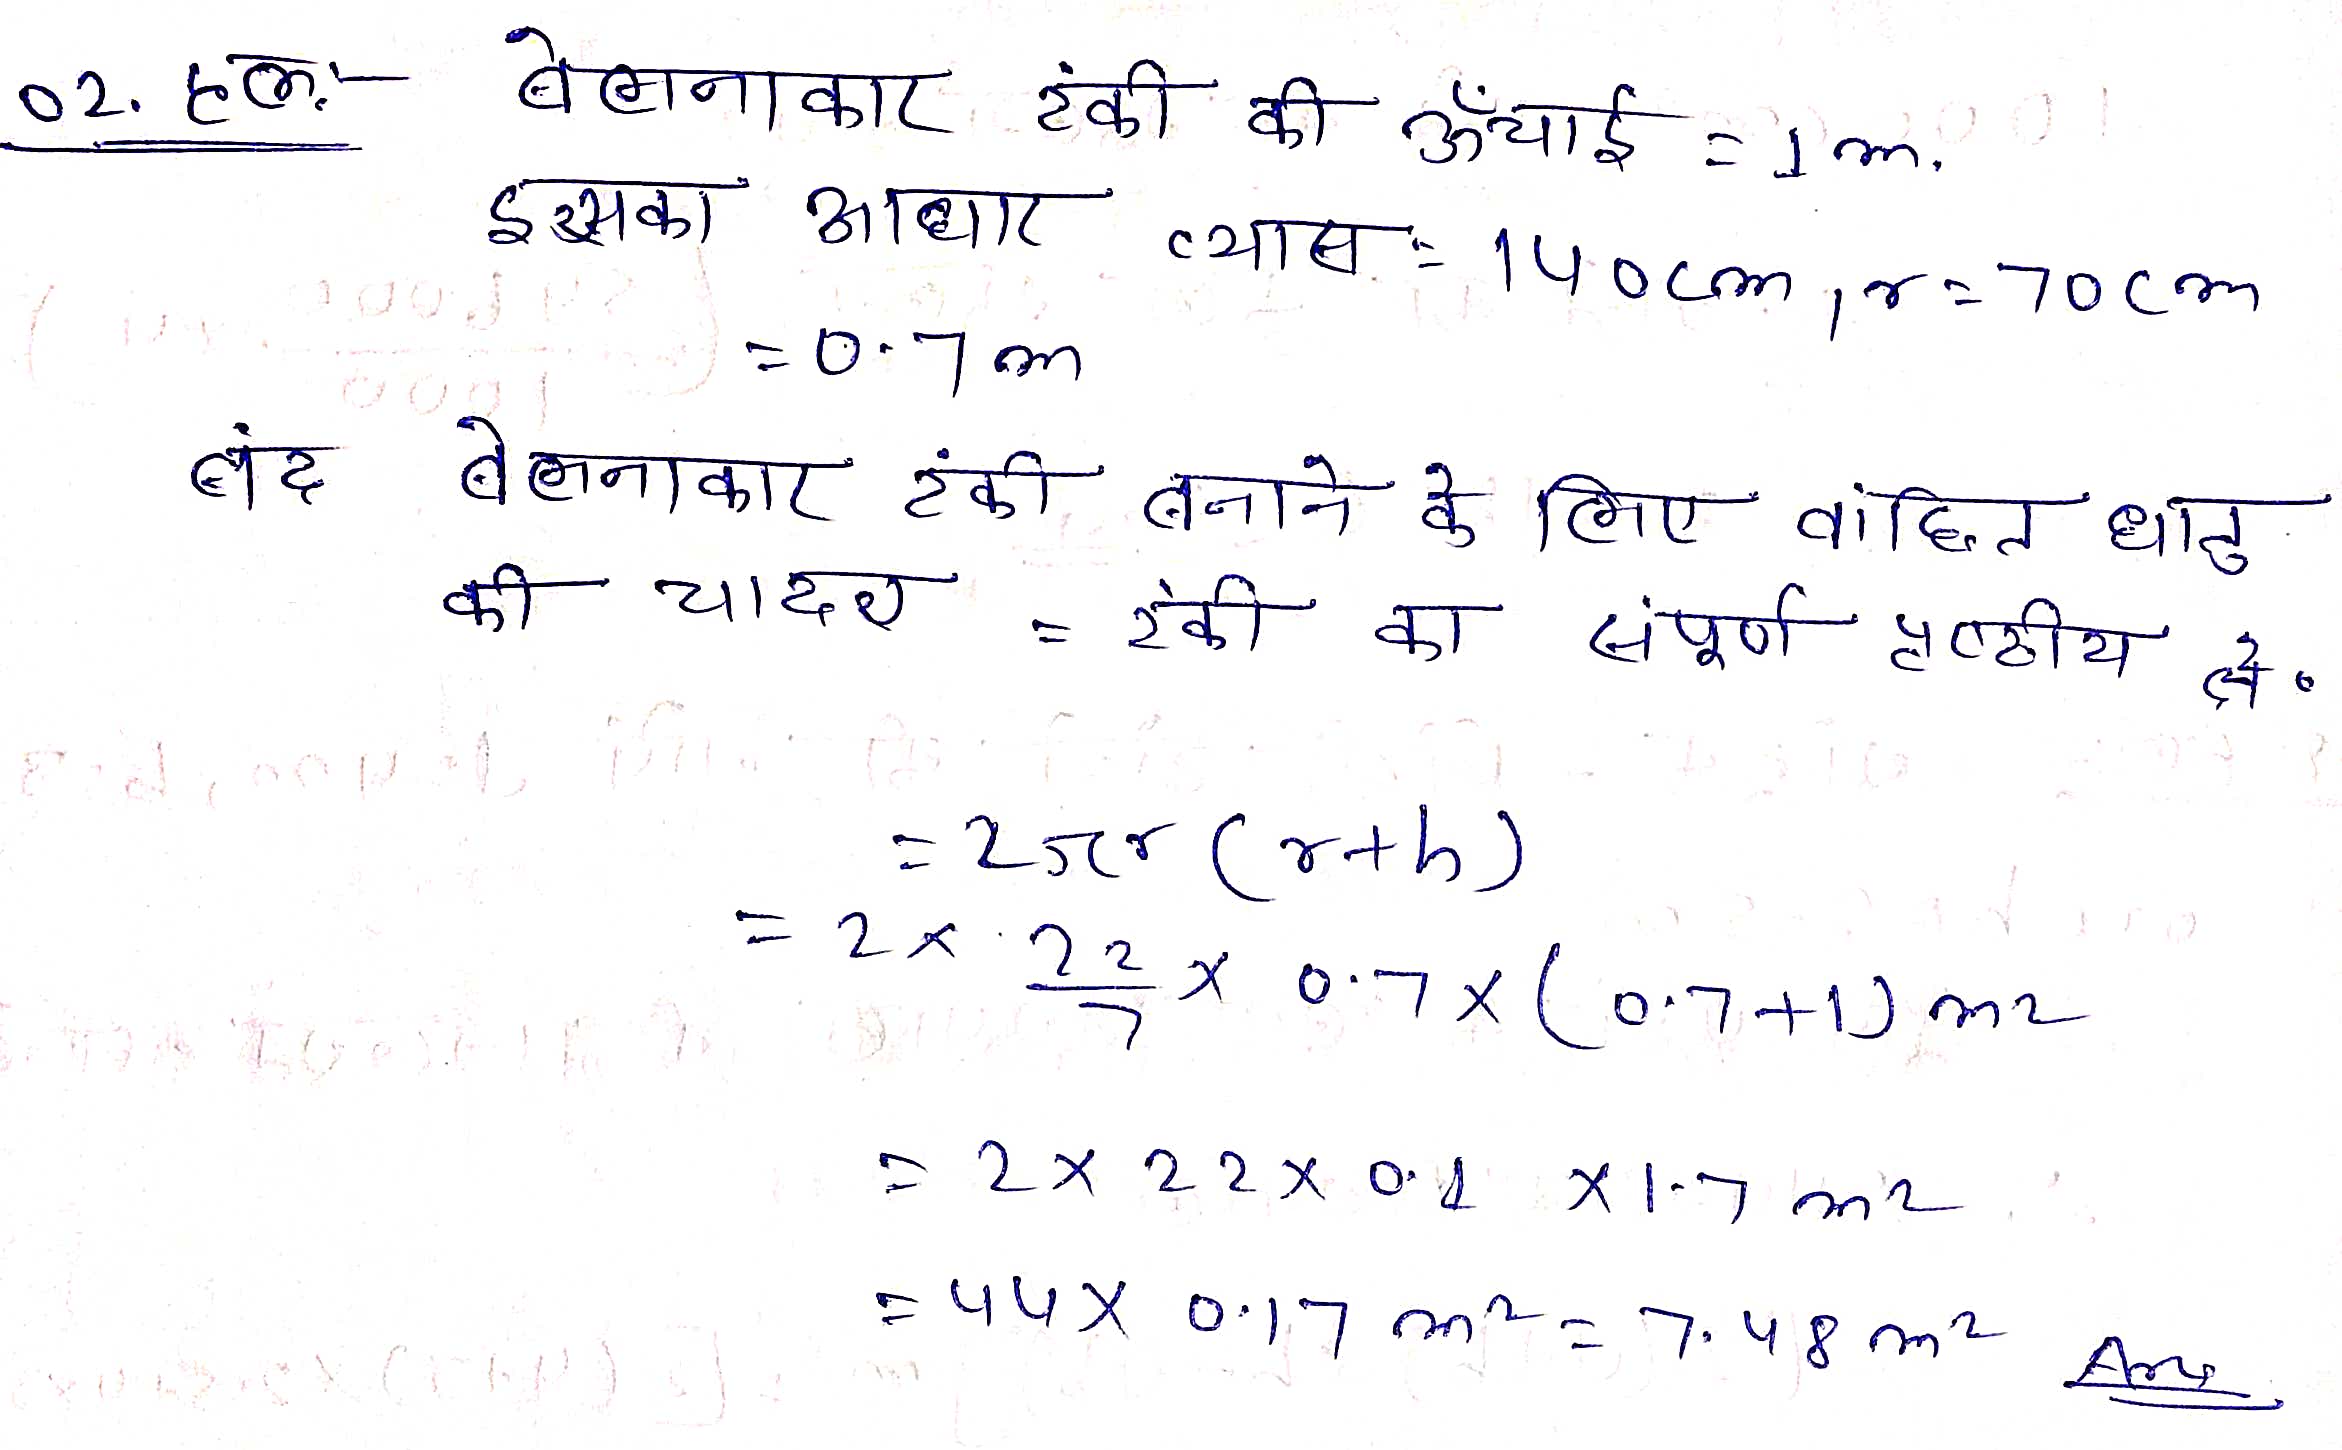 02. हल:- बेलनाकार टंकी की ऊँचाई = 1 m.
इसका आधार व्यास = 140 cm, r = 70 cm
= 0.7 m
बंद बेलनाकार टंकी बनाने के लिए वांछित धातु
की चादर = टंकी का संपूर्ण पृष्ठीय क्षे०
= 2πr (r+h)
= 2 × 22/7 × 0.7 × (0.7+1) m2
= 2 × 22 × 0.1 × 1.7 m2
= 44 × 0.17 m2 = 7.48 m2 Ans